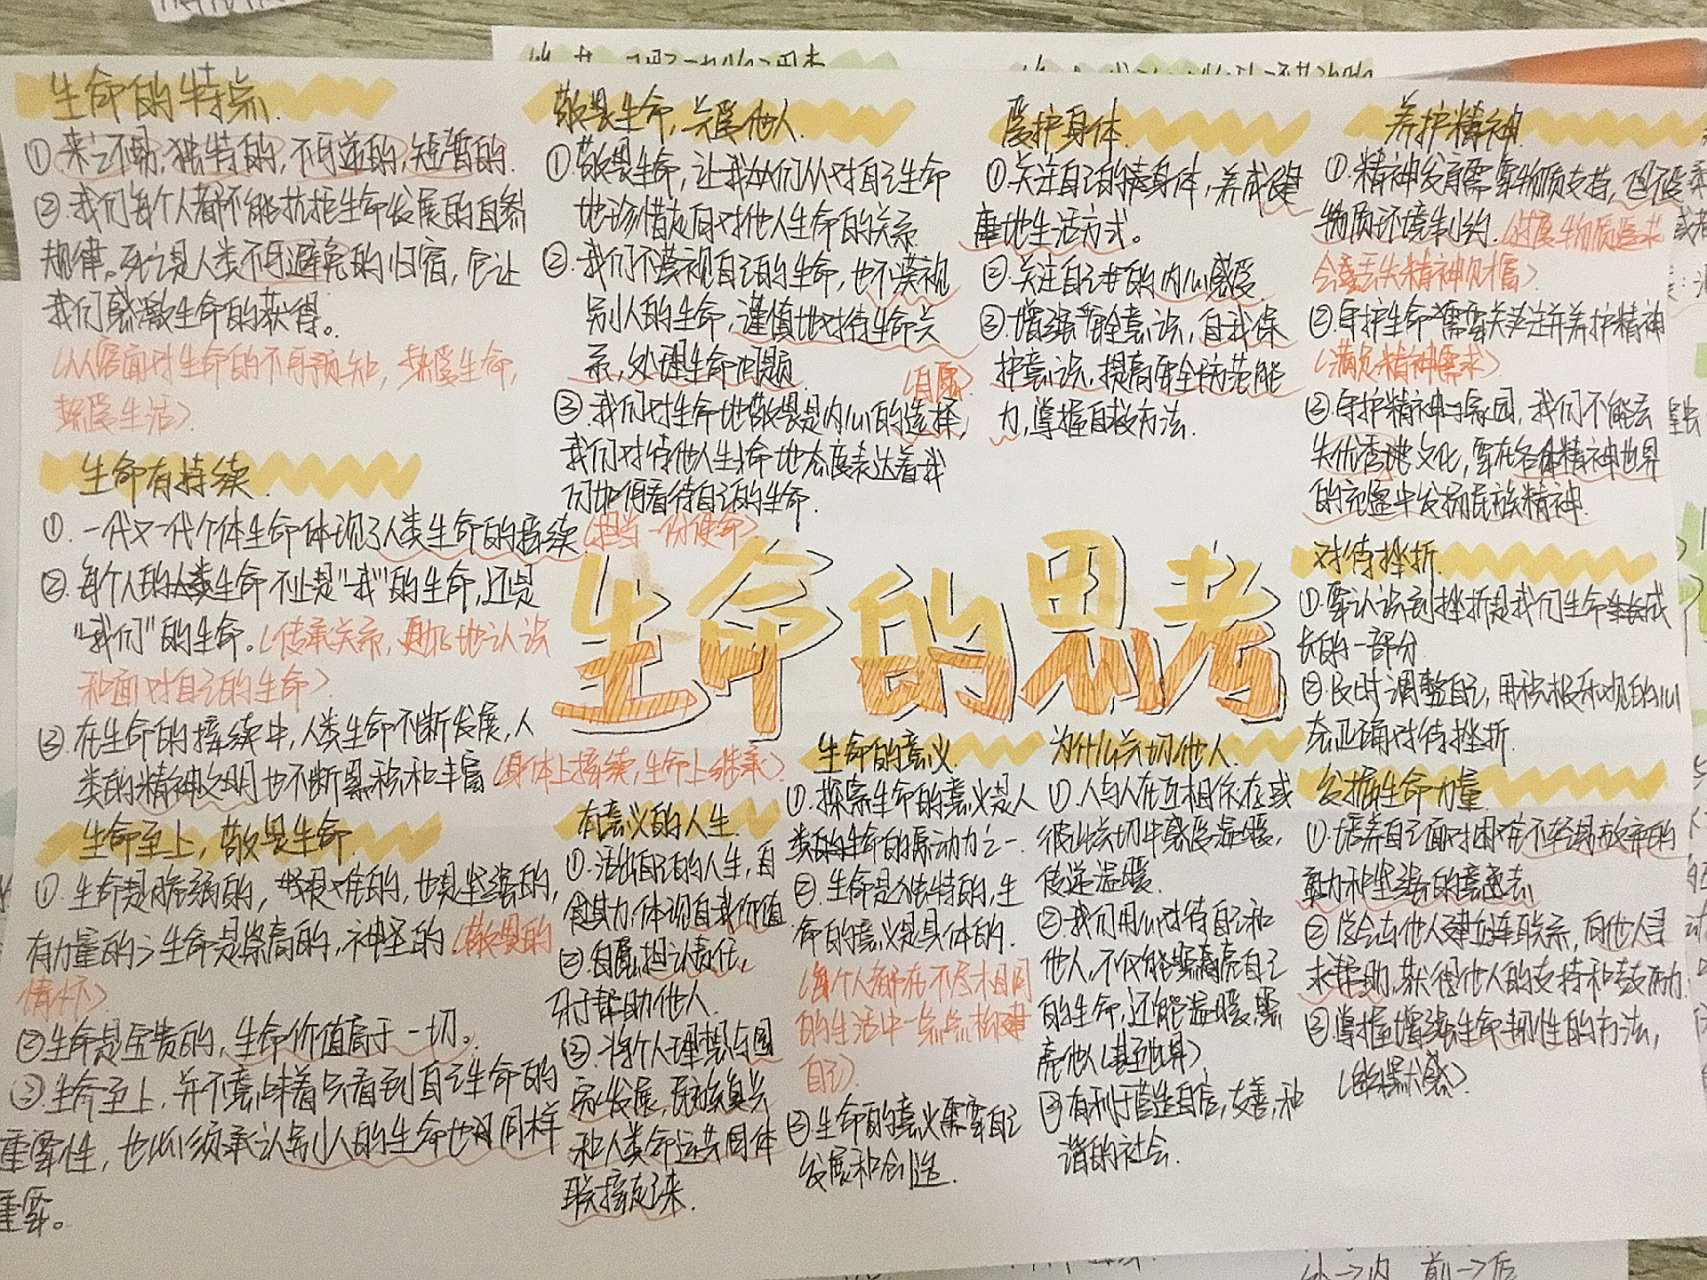 生命的特点
①来之不易,独特的,不可逆的,短暂的.
②.我们每个人都不能抗拒生命发展的自然
规律。死亡是人类不可避免的归宿,它让
我们感激生命的获得。
(从容面对生命的不可预知,热爱生命,
热爱生活)
生命有持续
①.一代又一代个体生命体现了人类生命的接续(担当一份使命)
②.每个人的生命不止是"我"的生命,还是
"我们"的生命。(传承关系,更好地认识
和面对自己的生命)
③.在生命的接续中,人类生命不断发展,人
类的精神文明也不断累积和丰富(身体上接续,生命上继承)
生命至上,敬畏生命
①.生命是脆弱的,艰难的,也是坚强的,
有力量的;生命是崇高的,神圣的(敬畏的
情怀)
②生命是宝贵的,生命价值高于一切。
③生命至上,并不意味着只看到自己生命的
重要性,也必须承认别人的生命也同样
重要。
敬畏生命,关爱他人.
①敬畏生命,让我们从对自己生命
地珍惜走向对他人生命的关系
②.我们不漠视自己的生命,也不漠视
别人的生命,谨慎地对待生命关
系,处理生命问题
(自愿)
③.我们对生命地敬畏是内心的选择,
我们对待他人生命地态度表达着我
们如何看待自己的生命.
爱护身体
①.关注自己的身体,养成健
康地生活方式。
②.关注自己的内心感受
③.增强安全意识,自我保
护意识,提高安全防范能
力,掌握自救方法.
养护精神
①.精神发育需要物质支持,但不受
物质环境制约.(过度物质追求
会丢失精神财富)
②.守护生命需要关注并养护精神
(满足精神需求)
③.守护精神家园,我们不能丢
失优秀文化,要在个体精神世界
的充盈中发扬民族精神
生命的思考
对待挫折
①.要认识到挫折是我们生命成
长的一部分
②.及时调整自己,用积极乐观的心
态正确对待挫折
发掘生命力量
①.培养自己面对困难不轻易放弃的
毅力和坚强的意志
②学会与他人建立联系,向他人寻
求帮助,获得他人的支持和鼓励
③掌握增强生命韧性的方法,
(幽默感)
有意义的人生
①.活出自己的人生,自
食其力,体现自我价值
②.自愿担认责任,
乐于帮助他人
③.将个人理想与国
家发展,民族复兴
和人类命运共同体
联接起来.
生命的意义
①.探索生命的意义是人
类的生命的原动力之一.
②.生命是独特的,生
命的意义是具体的.
(每个人都在不尽相同
的生活中一点点构建
自己)
③生命的意义需要自己
发展和创造.
为什么关切他人.
①.人与人在互相依存或
彼此关切中感受温暖,
传递温暖.
②.我们用心对待自己和
他人,不仅能照亮自己
的生命,还能温暖,照
亮他人(甚至世界)
③有利于营造自信,友善,和
谐的社会.
外→内 前→后